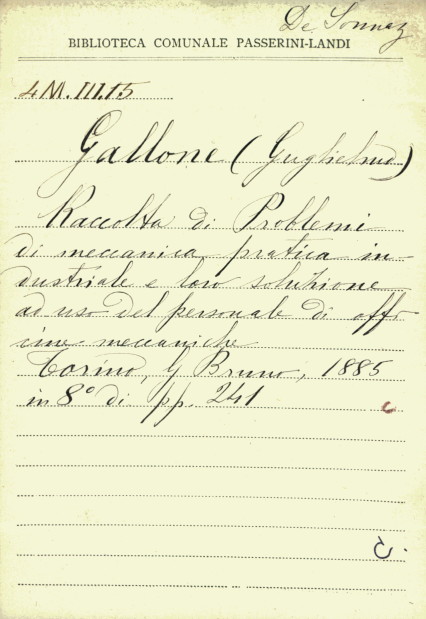 De Sonnaz
BIBLIOTECA COMUNALE PASSERINI-LANDI
4 M. III.15
Gallone (Guglielmo)
Raccolta di Problemi
di meccanica pratica in-
dustriale e loro soluzione
ad uso del personale di offi
cine meccaniche
Torino, G Bruno, 1885
in 8° di pp. 241
c